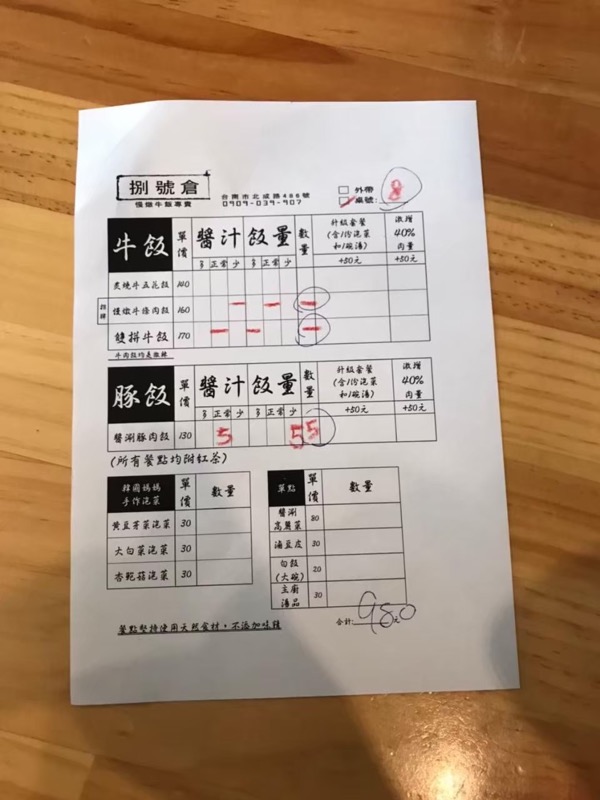 捌號倉
慢燉牛飯專賣
台南市北成路486號
0909-039-907
外帶
桌號: 8
牛飯 單價 醬汁 飯量 數量 升級套餐(含1份泡菜和1碗湯) 激增40%肉量
多 正常 少 多 正常 少 +50元 +50元
炙燒牛五花飯 140
慢燉牛條肉飯 160 一 一 一
雙拼牛飯 170 一 一 一
牛肉飯均是微辣
豚飯 單價 醬汁 飯量 數量 升級套餐(含1份泡菜和1碗湯) 激增40%肉量
多 正常 少 多 正常 少 +50元 +50元
醬涮豚肉飯 130 5 5 5
(所有餐點均附紅茶)
韓國媽媽手作泡菜 單價 數量
黃豆芽菜泡菜 30
大白菜泡菜 30
杏鮑菇泡菜 30
單點 單價 數量
醬涮高麗菜 80
滷豆皮 30
白飯(大碗) 20
主廚湯品 30
合計: 980元
餐點堅持使用天然食材,不添加味精